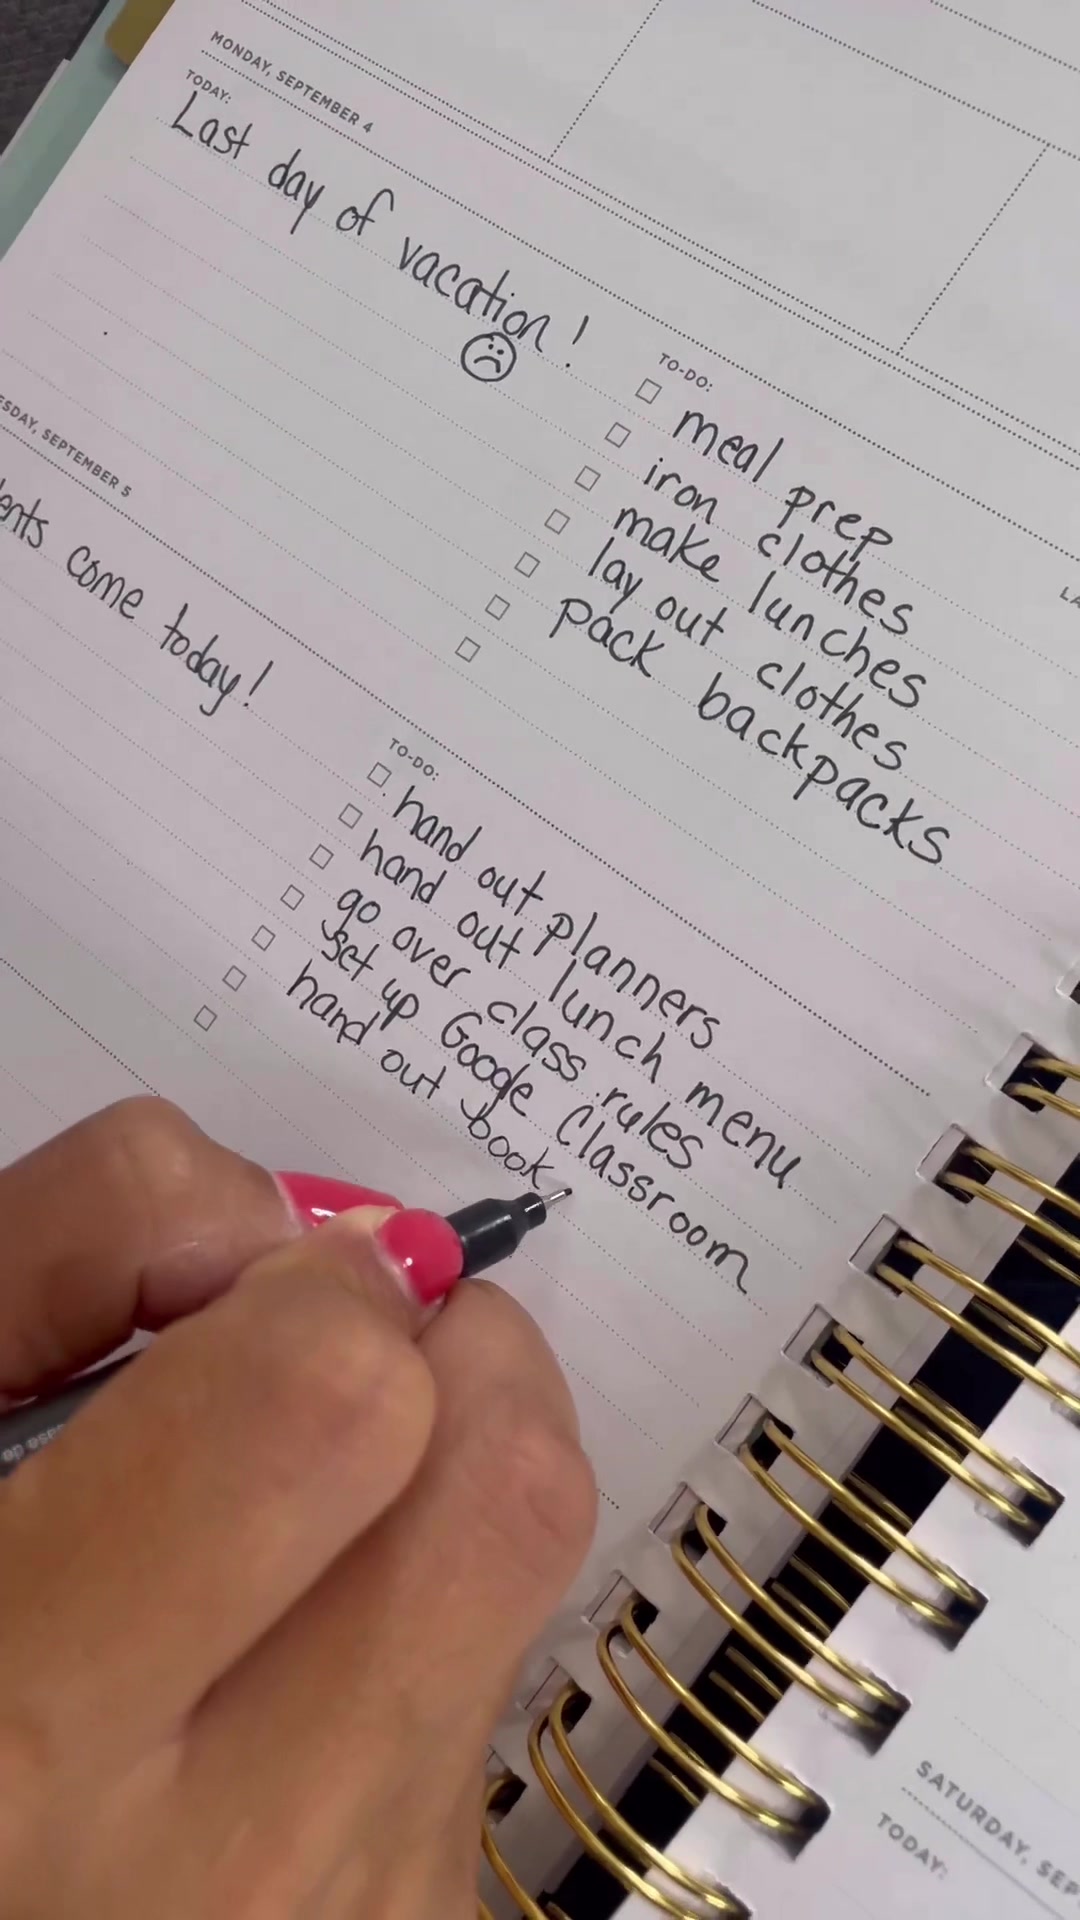 MONDAY, SEPTEMBER 4
TODAY:
Last day of vacation!
TO-DO:
meal prep
iron clothes
make lunches
lay out clothes
pack backpacks
ESDAY, SEPTEMBER 5
ents come today!
TO-DO:
hand out planners
hand out lunch menu
go over class rules
set up Google Classroom
hand out book
SATURDAY, SEP
TODAY: